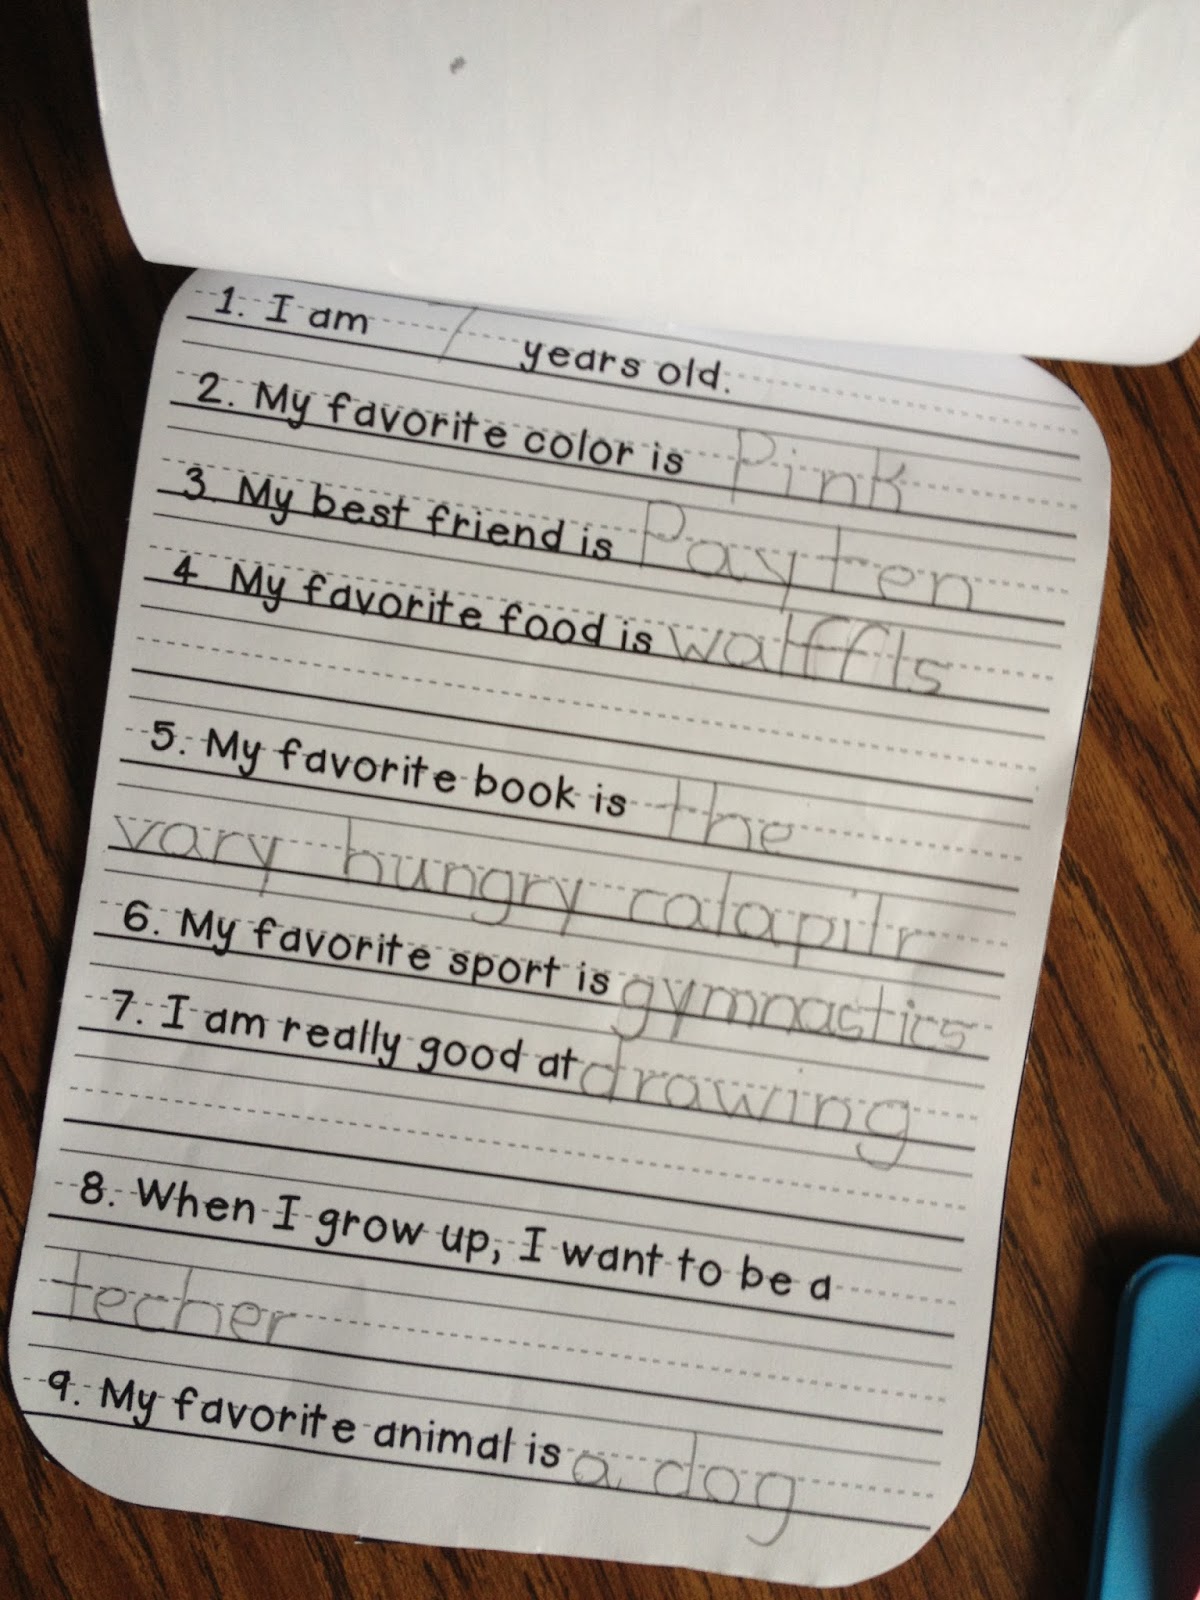 1. I am 7 years old.
2. My favorite color is Pink
3. My best friend is Payten
4 My favorite food is walffls
5. My favorite book is the
vary hungry calapilr
6. My favorite sport is gymnastics
7. I am really good at drawing
8. When I grow up, I want to be a
techer
9. My favorite animal is a dog